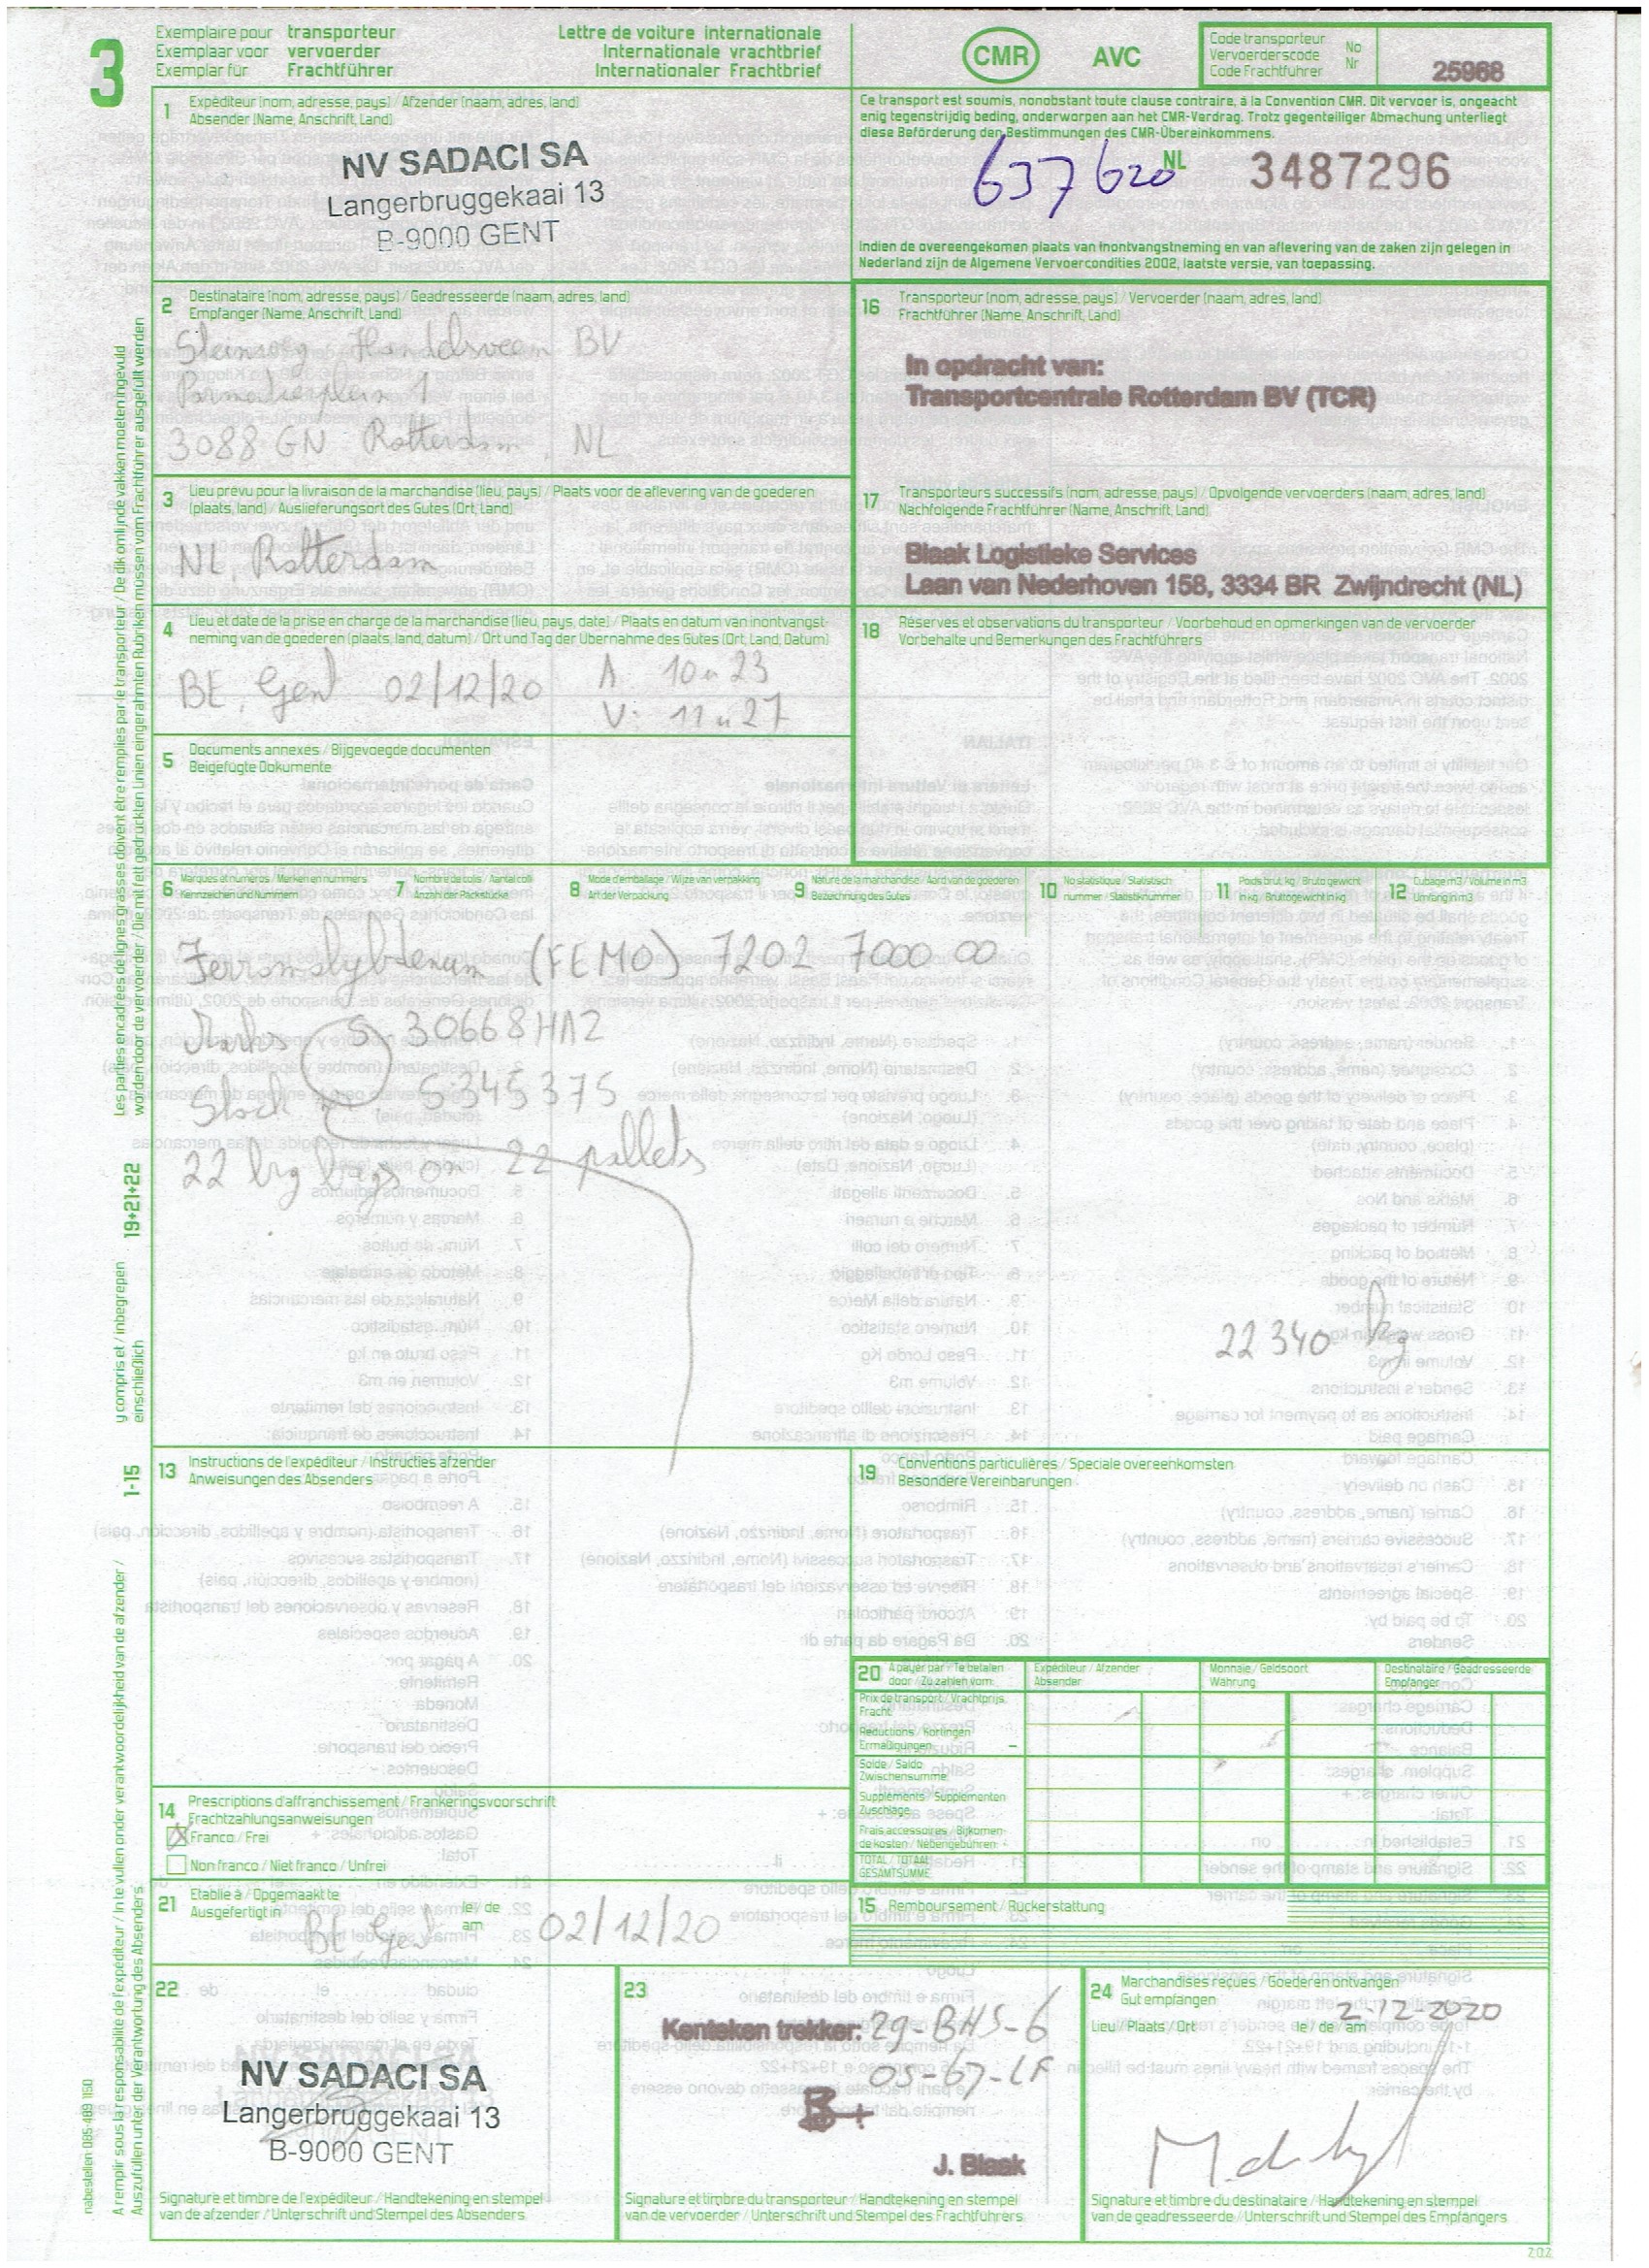 3
Exemplaire pour transporteur
Exemplaar voor vervoerder
Exemplar für Frachtführer
Lettre de voiture internationale
Internationale vrachtbrief
Internationaler Frachtbrief
CMR AVC
Code transporteur
Vervoerderscode
Code Frachtführer
No
Nr
25968
1 Expéditeur (nom, adresse, pays) / Afzender (naam, adres, land)
Absender (Name, Anschrift, Land)
NV SADACI SA
Langerbruggekaai 13
B-9000 GENT
Ce transport est soumis, nonobstant toute clause contraire, à la Convention CMR. Dit vervoer is, ongeacht
enig tegenstrijdig beding, onderworpen aan het CMR-Verdrag. Trotz gegenteiliger Abmachung unterliegt
diese Beförderung den Bestimmungen des CMR-Übereinkommens.
637620 NL 3487296
Indien de overeengekomen plaats van inontvangstneming en van aflevering van de zaken zijn gelegen in
Nederland zijn de Algemene Vervoercondities 2002, laatste versie, van toepassing.
2 Destinataire (nom, adresse, pays) / Geadresseerde (naam, adres, land)
Empfänger (Name, Anschrift, Land)
Steinweg Handelsveem BV
Parmentierplein 1
3088 GN Rotterdam, NL
16 Transporteur (nom, adresse, pays) / Vervoerder (naam, adres, land)
Frachtführer (Name, Anschrift, Land)
In opdracht van:
Transportcentrale Rotterdam BV (TCR)
3 Lieu prévu pour la livraison de la marchandise (lieu, pays) / Plaats voor de aflevering van de goederen
(plaats, land) / Auslieferungsort des Gutes (Ort, Land)
NL, Rotterdam
17 Transporteurs successifs (nom, adresse, pays) / Opvolgende vervoerders (naam, adres, land)
Nachfolgende Frachtführer (Name, Anschrift, Land)
Blaak Logistieke Services
Laan van Nederhoven 158, 3334 BR Zwijndrecht (NL)
4 Lieu et date de la prise en charge de la marchandise (lieu, pays, date) / Plaats en datum van inontvangst-
neming van de goederen (plaats, land, datum) / Ort und Tag der Übernahme des Gutes (Ort, Land, Datum)
BE, Gent 02/12/20 A 10u23
V: 11u27
18 Réserves et observations du transporteur / Voorbehoud en opmerkingen van de vervoerder
Vorbehalte und Bemerkungen des Frachtführers
5 Documents annexés / Bijgevoegde documenten
Beigefügte Dokumente
6 Marques et numéros / Merken en nummers
Kennzeichen und Nummern
7 Nombre de colis / Aantal colli
Anzahl der Packstücke
8 Mode d'emballage / Wijze van verpakking
Art der Verpackung
9 Nature de la marchandise / Aard van de goederen
Bezeichnung des Gutes
10 No statistique / Statistisch
nummer / Statistiknummer
11 Poids brut, kg / Bruto gewicht
in kg / Bruttogewicht in kg
12 Cubage m3 / Volume in m3
Umfang in m3
Ferromolybdenum (FEMO) 7202 7000 00
Marks S 30668HA2
Stock S345375
22 big bags on 22 pallets
22 340 kg
13 Instructions de l'expéditeur / Instructies afzender
Anweisungen des Absenders
19 Conventions particulières / Speciale overeenkomsten
Besondere Vereinbarungen
20 A payer par / Te betalen
door / Zu zahlen vom:
Expéditeur / Afzender
Absender
Monnaie / Geldsoort
Währung
Destinataire / Geadresseerde
Empfänger
Prix de transport / Vrachtprijs
Fracht
Réductions / Kortingen
Ermäßigungen -
Solde / Saldo
Zwischensumme
Suppléments / Supplementen
Zuschläge
Frais accessoires / Bijkomen-
de kosten / Nebengebühren +
TOTAL / TOTAAL
GESAMTSUMME
14 Prescriptions d'affranchissement / Frankeringsvoorschrift
Frachtzahlungsanweisungen
Franco / Frei
Non franco / Niet franco / Unfrei
21 Etablie à / Opgemaakt te
Ausgefertigt in
BE Gent
le / de
am
02/12/20
15 Remboursement / Rückerstattung
22
NV SADACI SA
Langerbruggekaai 13
B-9000 GENT
Signature et timbre de l'expéditeur / Handtekening en stempel
van de afzender / Unterschrift und Stempel des Absenders
23
Kenteken trekker: 29-BHS-6
05-67-LF
B+
J. Blaak
Signature et timbre du transporteur / Handtekening en stempel
van de vervoerder / Unterschrift und Stempel des Frachtführers
24 Marchandises reçues / Goederen ontvangen
Gut empfangen
Lieu / Plaats / Ort
le / de / am
2-12-2020
Signature et timbre du destinataire / Handtekening en stempel
van de geadresseerde / Unterschrift und Stempel des Empfängers
202
Les parties encadrées de lignes grasses doivent être remplies par le transporteur / De dik omlijnde vakken moeten ingevuld
worden door de vervoerder / Die mit fett gedruckten Linien eingerahmten Rubriken müssen vom Frachtführer ausgefüllt werden
19+21+22
y compris et / inbegrepen
einschließlich
1-15
A remplir sous la responsabilité de l'expéditeur / In te vullen onder verantwoordelijkheid van de afzender /
Auszufüllen unter der Verantwortung des Absenders
nabestellen 085-489 1150